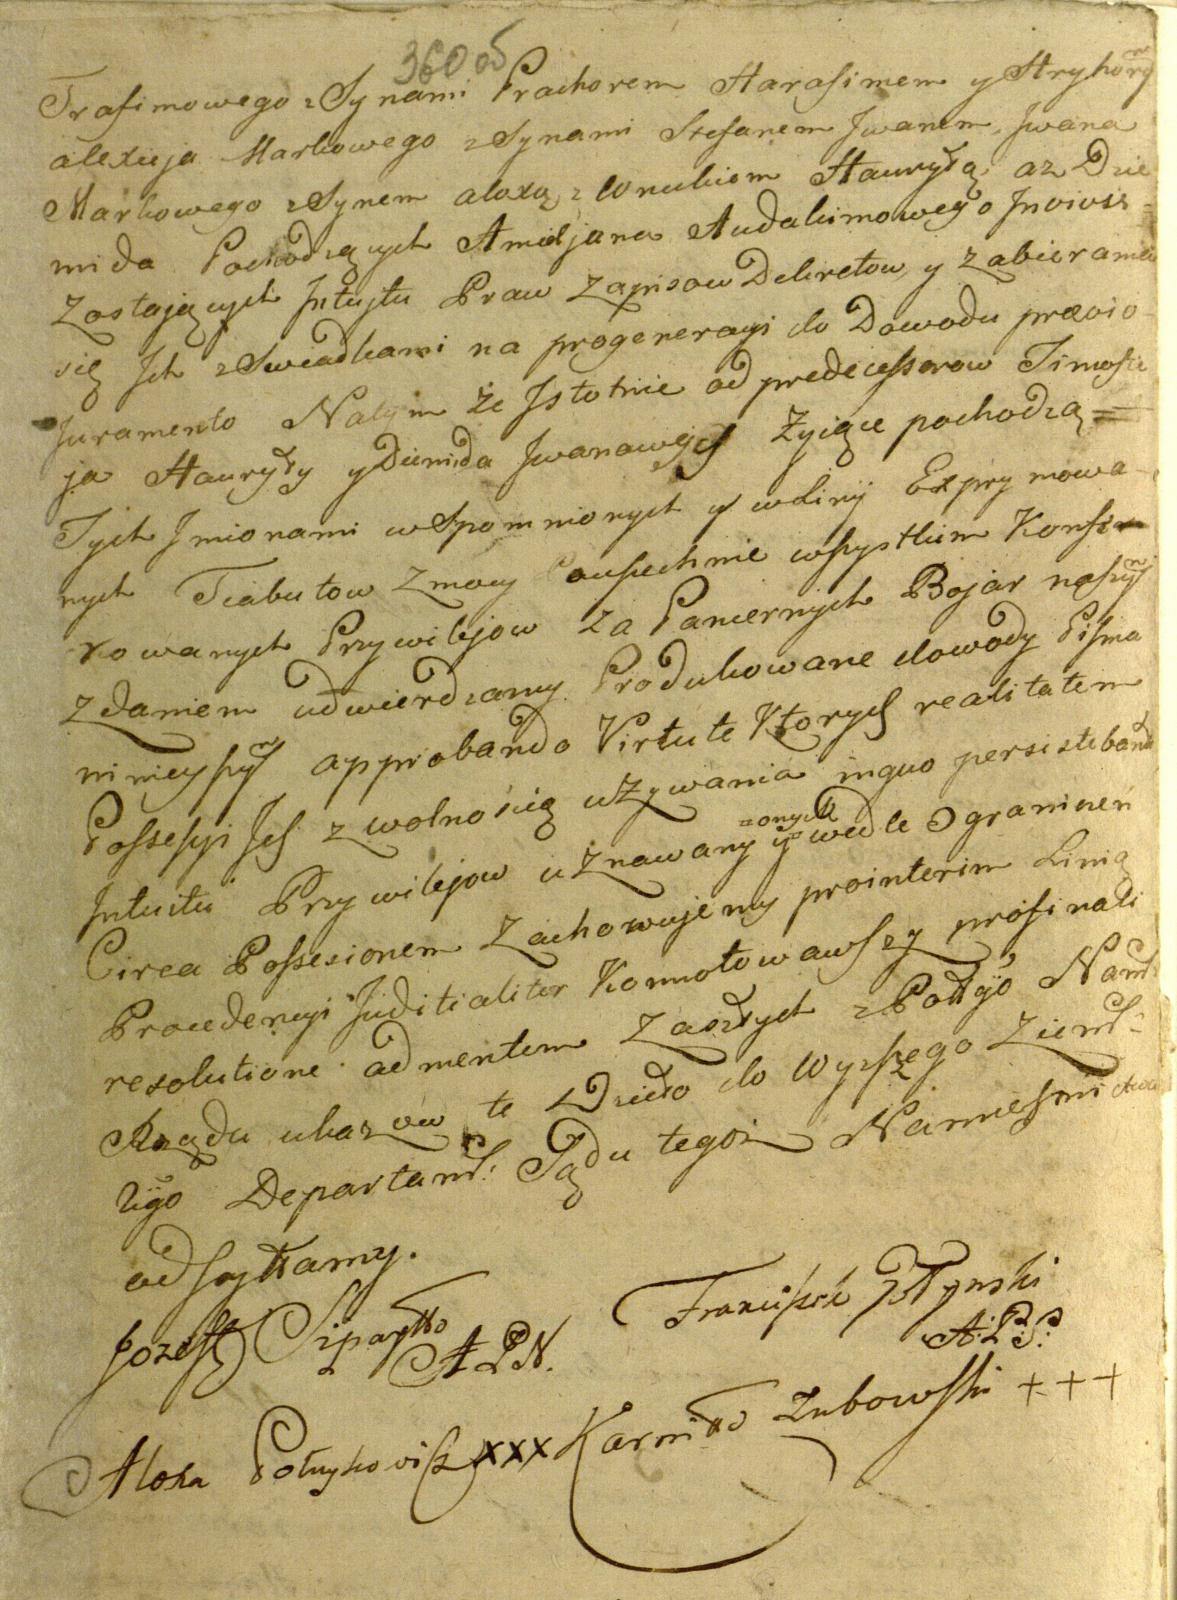 360 об
Trafimowego z Synami Prachorem Harasimem y Hryhorym
alexieja Markowego z Synami Stefanem Jwanem, Jwana
Markowego z Synem alexą, z Wnukiem Hauryłą, az Die
mida Pochodzących Amiljana Audakimowego
Zostających Jntuitu Praw Zapisow Dekretow, y Zabierania
się Jch z Swiadkami na progeneracyi do Dowodu praevio
Juramento Natym że Jstotnie od predecessorow Timofie
ja Hauryły y Diemida Jwanowych Żyiące pochodzą =
Tych Jmionami wspomnionych y w Linij Exprymowa
nych Trabutow z mocy Powszechnie wszystkim Konfe
rowanych Przywilejow za Pancernych Bojar naszym
zdaniem udwierdzamy Produkowane dowody Pisma
ninieyszym approbando Virtute Ktorych realitatem
Possessyi Jch z wolnością używania inquo persistebant
=onych
Jntuitu Przywilejow uznawamy y wedle Ograniczeń
Circa Possesionem Zachowujemy prointerim Linią
Procedencyi Juditialiter Konnotowawszy pro finali
resolutione ad mentem Zaszłych z Połłgo Namł:
Rządu ukazow te Dzieło do Wyższego Ziemł:
kijgo Departamł: Sądu tegoż Namiesnictwa
odsyłłamy.
Jozeff Sipayłło
A P N.
Franciszek Żołłynski
A: P: S:
Alexa Połuykowicz xxx Karniłło Zubowski +++